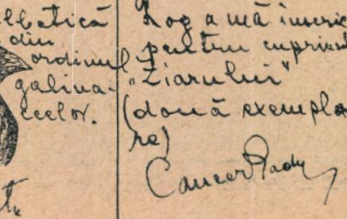 lbatică
din
ordinul
galina-
ceelor.
Rog a mă înscrie
pentru
"Ziarului"
(două exempla
re)